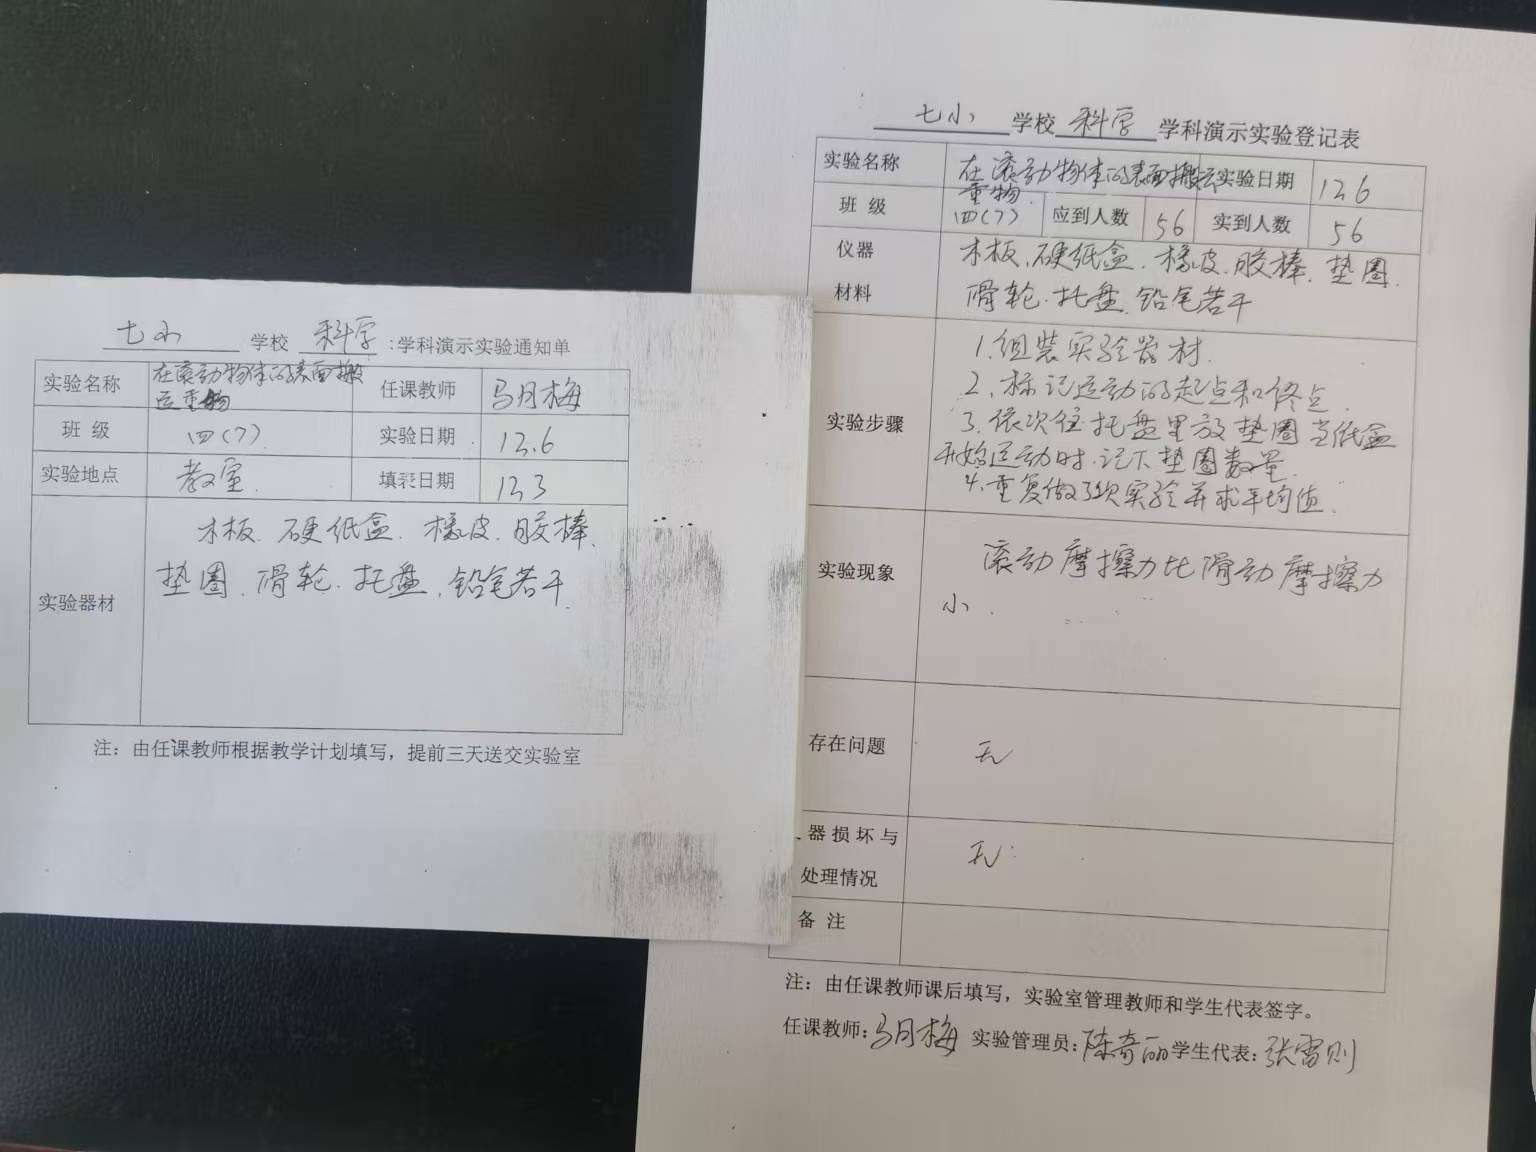 七小 学校 科学 :学科演示实验通知单
实验名称 在滚动物体的表面搬运重物 任课教师 马月梅
班 级 四(7) 实验日期 12.6
实验地点 教室 填表日期 12.3
实验器材 木板、硬纸盒、橡皮、胶棒、
垫圈、滑轮、托盘、铅笔若干
注：由任课教师根据教学计划填写，提前三天送交实验室
七小 学校 科学 学科演示实验登记表
实验名称 在滚动物体的表面搬运重物 实验日期 12.6
班 级 四(7) 应到人数 56 实到人数 56
仪器 木板、硬纸盒、橡皮、胶棒、垫圈、
材料 滑轮、托盘、铅笔若干
1.组装实验器材.
2.标记运动的起点和终点.
实验步骤 3.依次往托盘里放垫圈当纸盒
开始运动时,记下垫圈数量
4.重复做3次实验并求平均值.
实验现象 滚动摩擦力比滑动摩擦力
小.
存在问题 无
器损坏与 无
处理情况
备 注
注：由任课教师课后填写，实验室管理教师和学生代表签字。
任课教师:马月梅 实验管理员:陈奇丽 学生代表:张雷则